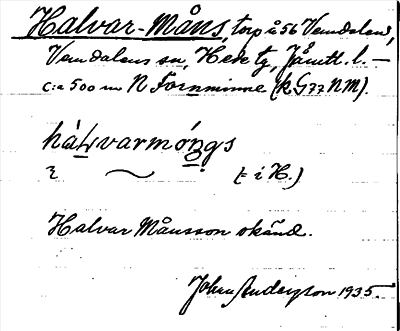 Halvar-Måns, torp å 56 Vemdalen,
Vemdalens sn, Hede tg, Jämtl. l. —
c:a 500 m N Fornminne (k G77 NM).
hàlvarmóngs
(t i H.)
Halvar Månsson okänd.
John Anderson 1935.